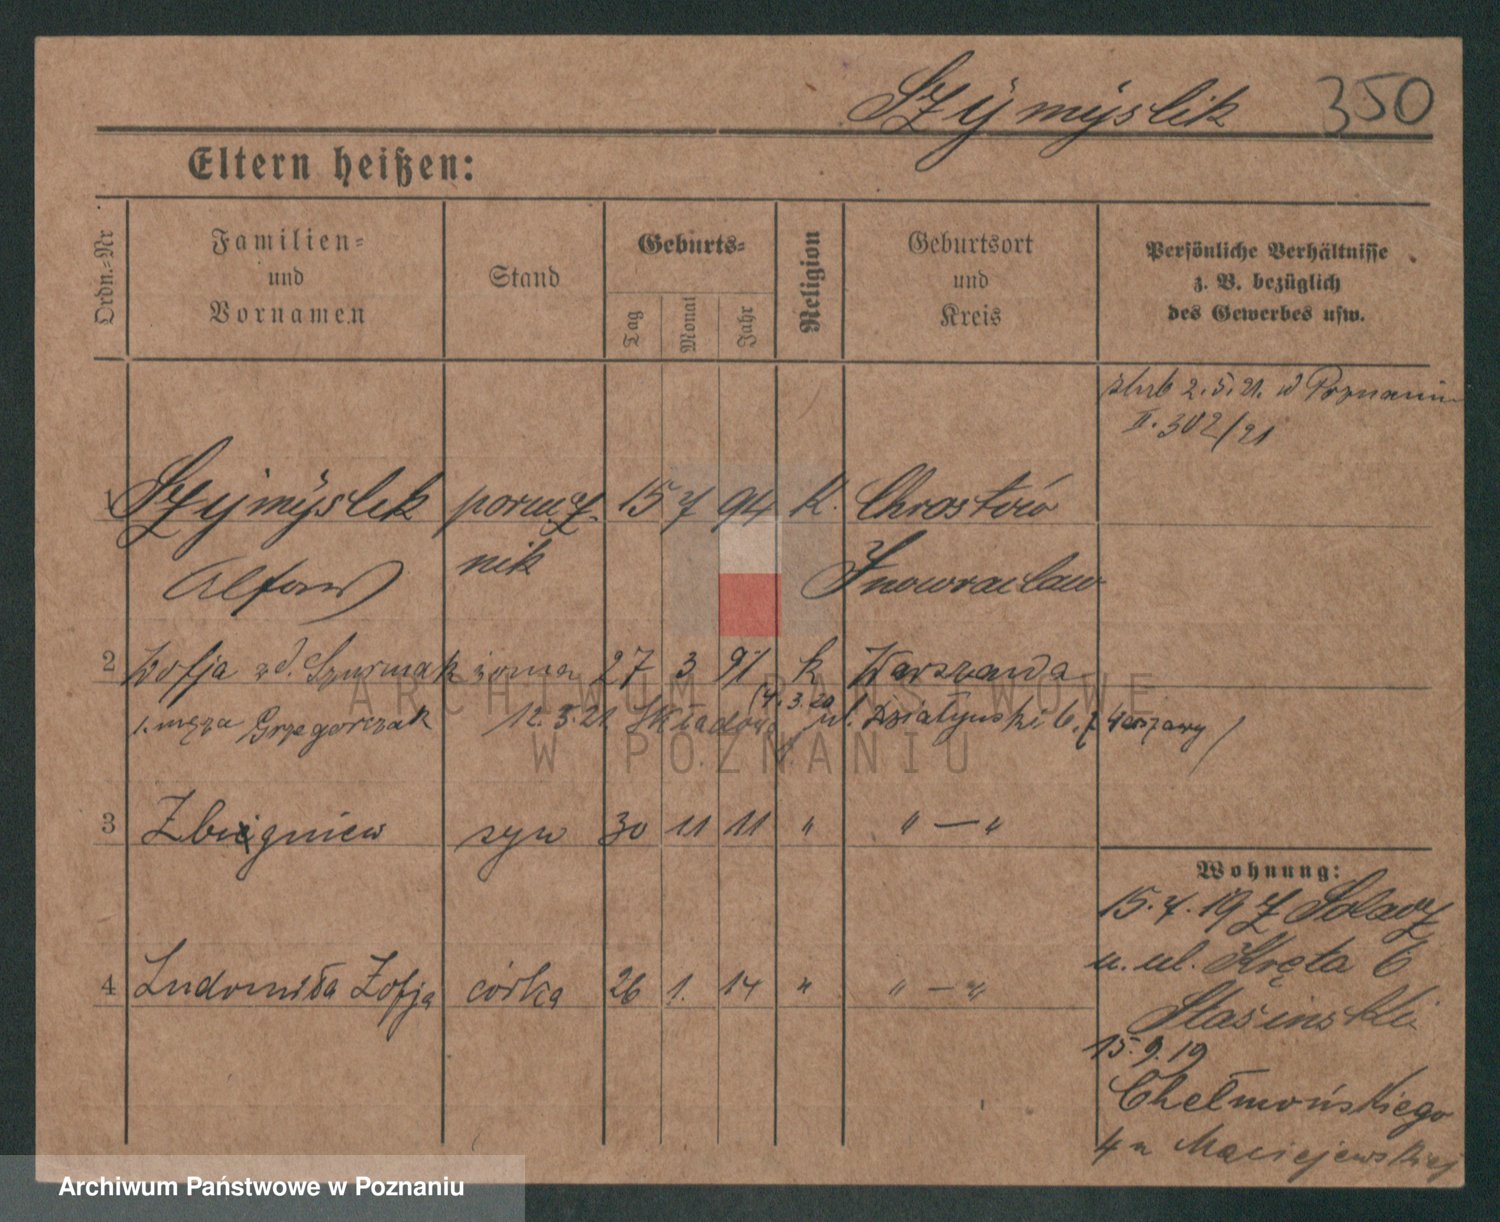 Szymyslik 350
Eltern heißen:
Ordn.-Nr
Familien-
und
Vornamen
Stand
Geburts-
Tag
Monat
Jahr
Religion
Geburtsort
und
Kreis
Persönliche Verhältnisse
z. B. bezüglich
des Gewerbes usw.
ślub 2.5.21. w Poznaniu
II. 302/21
1 Szymyslik porucz- 15 7 94 K.
Alfons nik Inowraclaw
2 Zofja zd. Szurmak żona 27 3 91 k Warszawa
1. męża Grzegorczak 12.3.21 Składowa (4.3.20 ul. Działyńskich 6. z Warszawy)
3 Zbigniew syn 30 11 11 " " — "
4 Ludomiła Zofja córka 26 1. 14 " " — "
Wohnung:
15.7.19 z Solacz
u. ul. Kręta 6
15.9.19
Chełmońskiego
4 u Maciejewskiej
ARCHIWUM PAŃSTWOWE
W POZNANIU
Archiwum Państwowe w Poznaniu